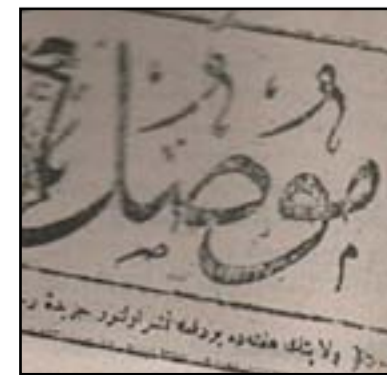 موصل
ولايتك هفته ده بر دفعه نشر اولنور جريدهٔ